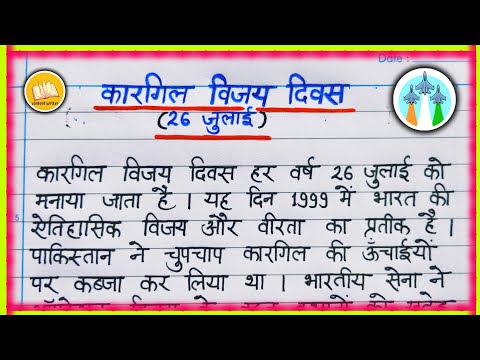 Date :
content writer
कारगिल विजय दिवस
(26 जुलाई)
कारगिल विजय दिवस हर वर्ष 26 जुलाई को
मनाया जाता है । यह दिन 1999 में भारत की
ऐतिहासिक विजय और वीरता का प्रतीक है ।
पाकिस्तान ने चुपचाप कारगिल की ऊँचाईयों
पर कब्जा कर लिया था । भारतीय सेना ने